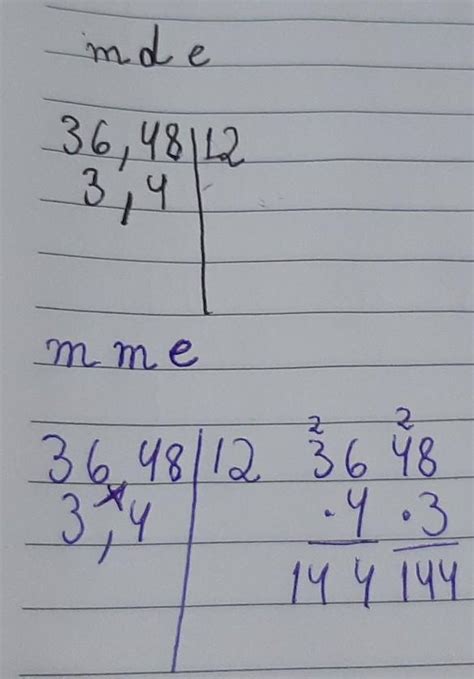 mde
36,48|12
3,4
mme
2 2
36,48|12 36 48
3,4 .4 .3
144 144